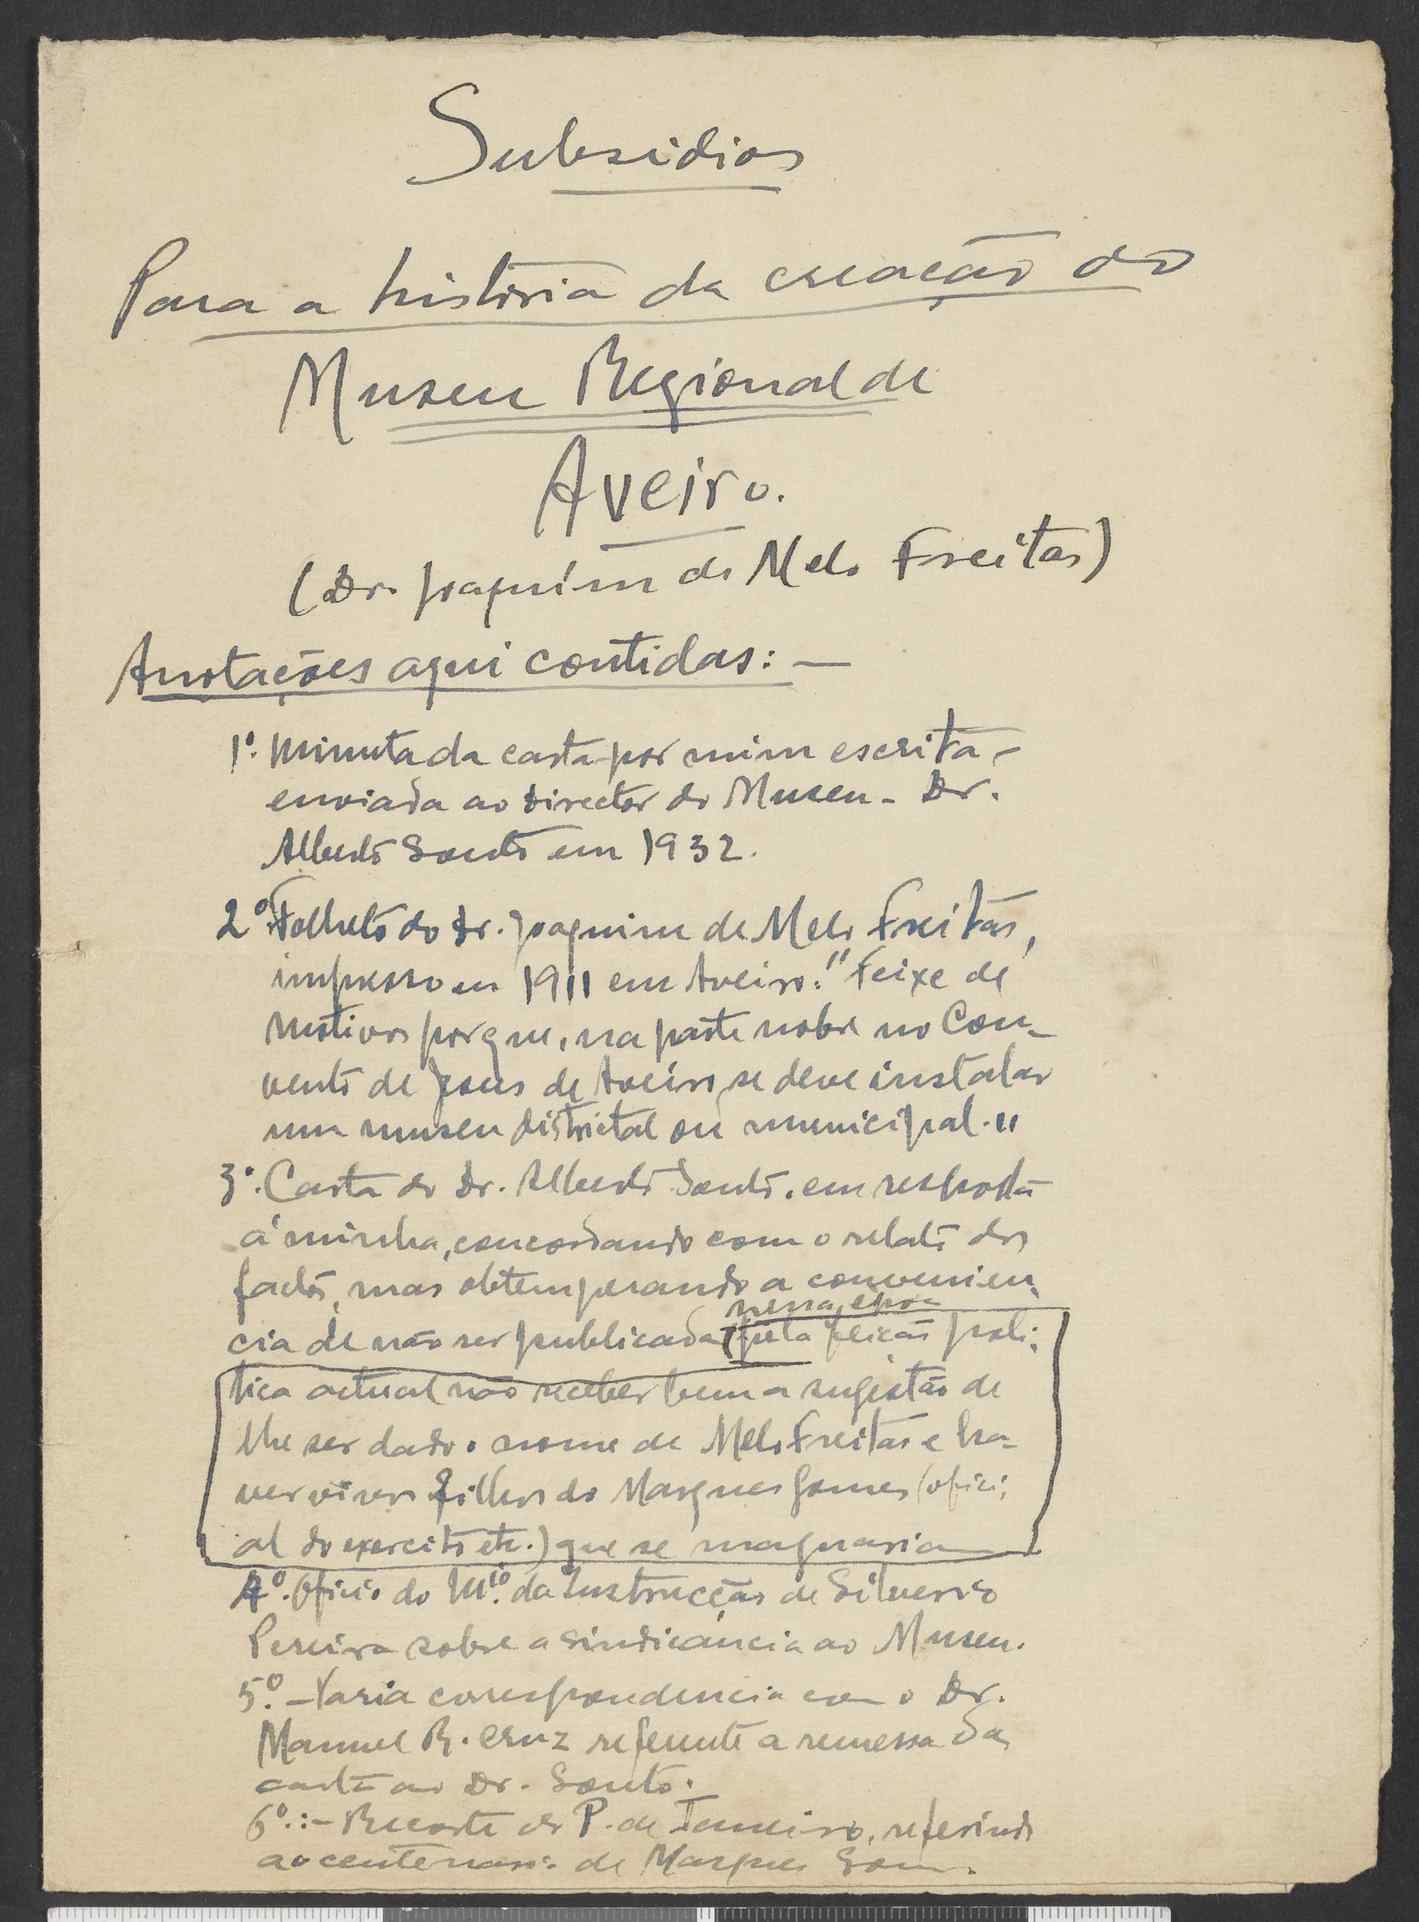 Subsidios
Para a historia da creação do
Museu Regional de
Aveiro.
(Dr. Joaquim de Melo Freitas)
Anotações aqui contidas: —
1º. Minuta da carta por mim escrita -
enviada ao director do Museu - Dr.
Alberto Souto em 1932.
2º. Folheto do Dr. Joaquim de Melo Freitas,
impresso em 1911 em Aveiro: "Feixe de
motivos porque, na parte nobre no Con-
vento de Jesus de Aveiro, se deve instalar
um museu distrital ou municipal."
3º. Carta do Dr. Alberto Souto, em resposta
á minha, concordando com o relato dos
factos, mas obtemperando a convenien-
nessa epoca
cia de não ser publicada (pela feição poli-
tica actual não receber bem a sugestão de
lhe ser dado o nome de Melo Freitas e ha-
ver vivos filhos do Marques Gomes (ofici-
al do exercito etc.) que se magoariam
4º. Oficio do Mio. da Instrucção de Silverio
Pereira sobre a sindicancia ao Museu.
5º. - Varia correspondencia com o Dr.
Manuel R. Cruz referente a remessa da
carta ao Dr. Souto.
6º.: - Recorte do P. de Janeiro, referindo
ao centenario de Marques Gom.